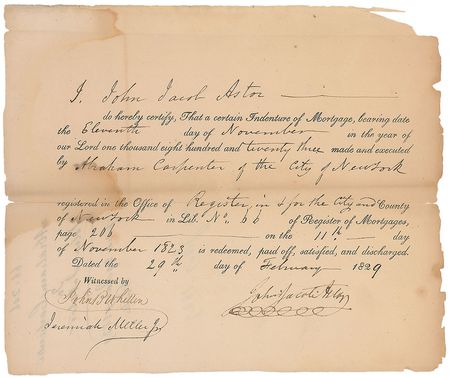 I, John Jacob Astor
do hereby certify, That a certain Indenture of Mortgage, bearing date
the Eleventh day of November in the year of
our Lord one thousand eight hundred and twenty three made and executed
by Abraham Carpenter of the City of New York
registered in the Office of Register, in & for the City and County
of New York in Lib. No. 66 of Register of Mortgages,
page 206 on the 11th day
of November 1823 is redeemed, paid off, satisfied, and discharged.
Dated the 29th day of February 1829
Witnessed by
John Jacob Astor
Jeremiah